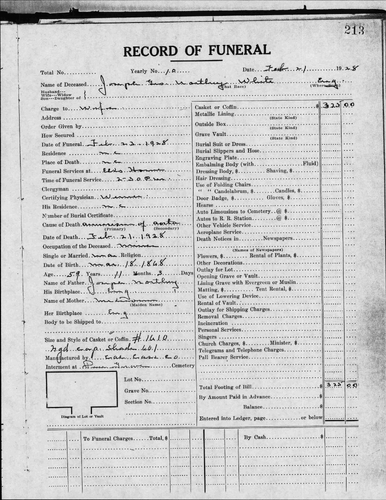 213
RECORD OF FUNERAL
Total No. Yearly No. 10 Date Feb. 21 1928
Name of Deceased Joseph Geo. Northey White Eng.
Husband— (Nat Race) (Where Born)
Wife—Widow
Son—Daughter of
Charge to Wife
Address
Order Given by
How Secured
Date of Funeral Feb. 22-1928
Residence
Place of Death
Funeral Services at
Time of Funeral Service 2-30 P.M.
Clergyman
Certifying Physician
His Residence
Number of Burial Certificate
Cause of Death aneurism of aorta
(Primary) (Secondary)
Date of Death Feb. 21. 1928
Occupation of the Deceased miner
Single or Married mar. Religion
Date of Birth Mar. 18. 1868
Age 59 Years 11 Months 3 Days
Name of Father Joseph Northey
His Birthplace Eng
Name of Mother
(Maiden Name)
Her Birthplace Eng
Body to be Shipped to
Size and Style of Casket or Coffin #1610
Manufactured by
Interment at Cemetery
Lot No.
Grave No.
Section No.
Diagram of Lot or Vault
Casket or Coffin $ 325 00
Metallic Lining
(State Kind)
Outside Box
(State Kind)
Grave Vault
(State Kind)
Burial Suit or Dress
Burial Slippers and Hose
Engraving Plate
Embalming Body (with Fluid)
Dressing Body, $ Shaving, $
Hair Dressing
Use of Folding Chairs
" " Candelabrum, $ Candles, $
Door Badge, $ Gloves, $
Hearse
Auto Limousines to Cemetery @ $
Autos to R. R. Station @ $
Other Vehicle Service
Aeroplane Service
Death Notices in Newspapers
(Names of Newspapers)
Flowers, $ Rental of Plants, $
Other Decorations
Outlay for Lot
Opening Grave or Vault
Lining Grave with Evergreen or Muslin
Matting, $ Tent Rental, $
Use of Lowering Device
Rental of Vault
Outlay for Shipping Charges
Removal Charges
Incineration
Personal Services
Singers
Church Charges, $ Minister, $
Telegrams and Telephone Charges
Pall Bearer Service
Total Footing of Bill $ 325 00
By Amount Paid in Advance
Balance
Entered into Ledger, page or below
To Funeral Charges Total $
By Cash $